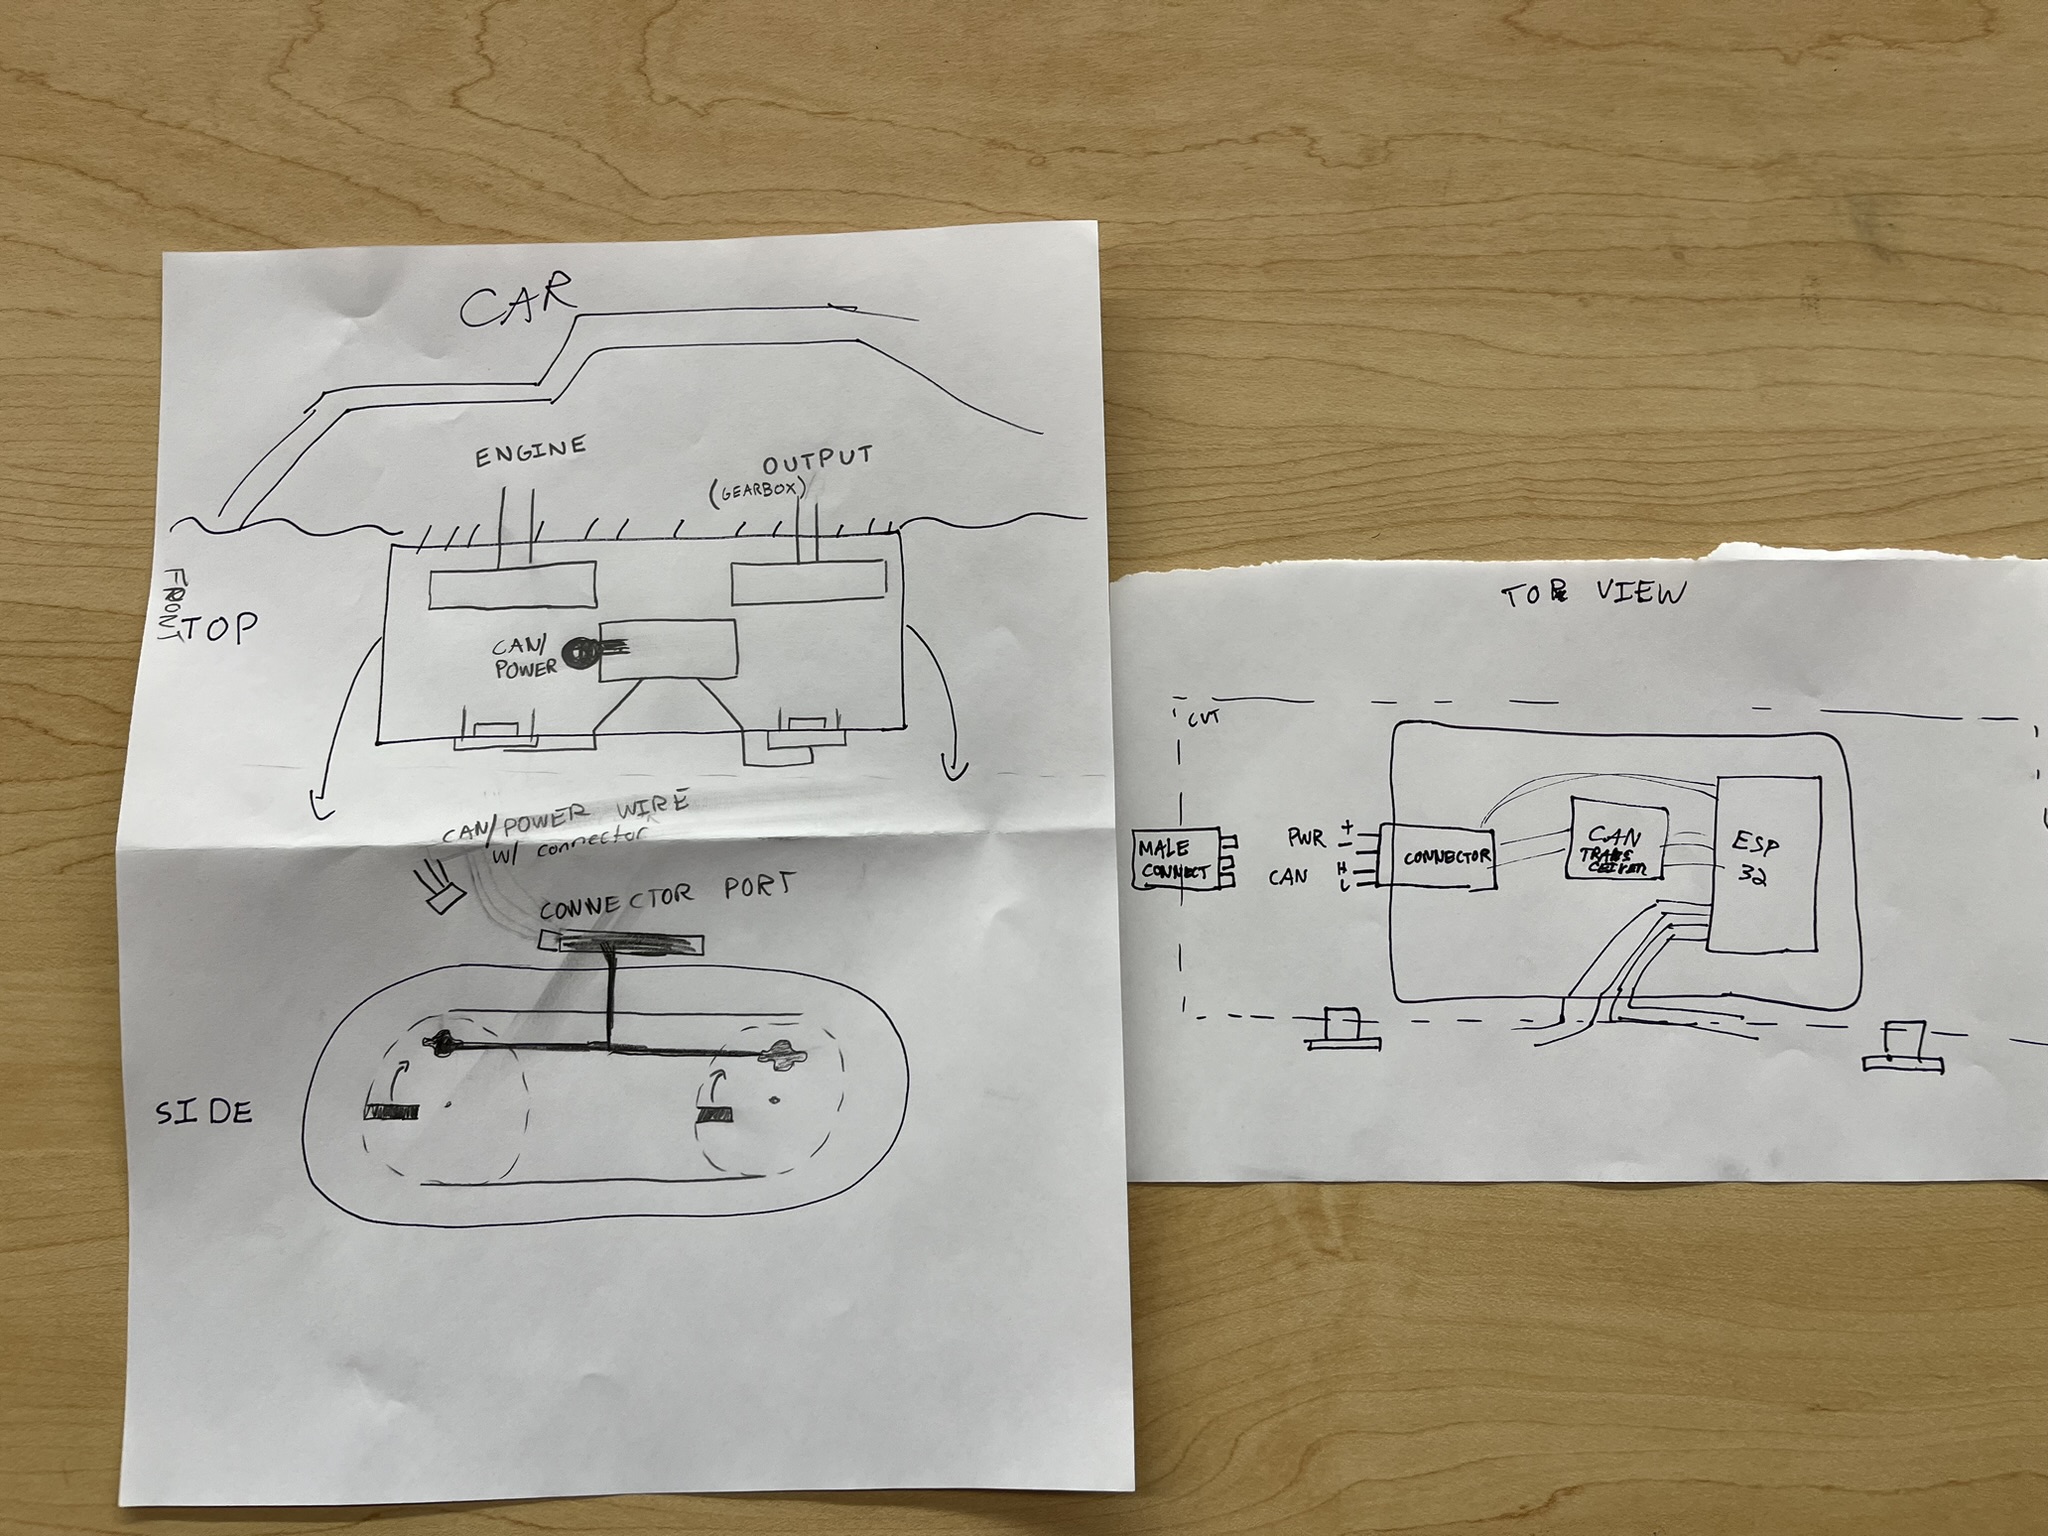 CAR
ENGINE
OUTPUT
(GEARBOX)
FRONT
TOP
CAN/
POWER
CAN/POWER WIRE
W/ connector
CONNECTOR PORT
SIDE
TOP VIEW
CVT
MALE
CONNECT
PWR + -
CAN H L
CONNECTOR
CAN
TRANS
CEIVER
ESP
32